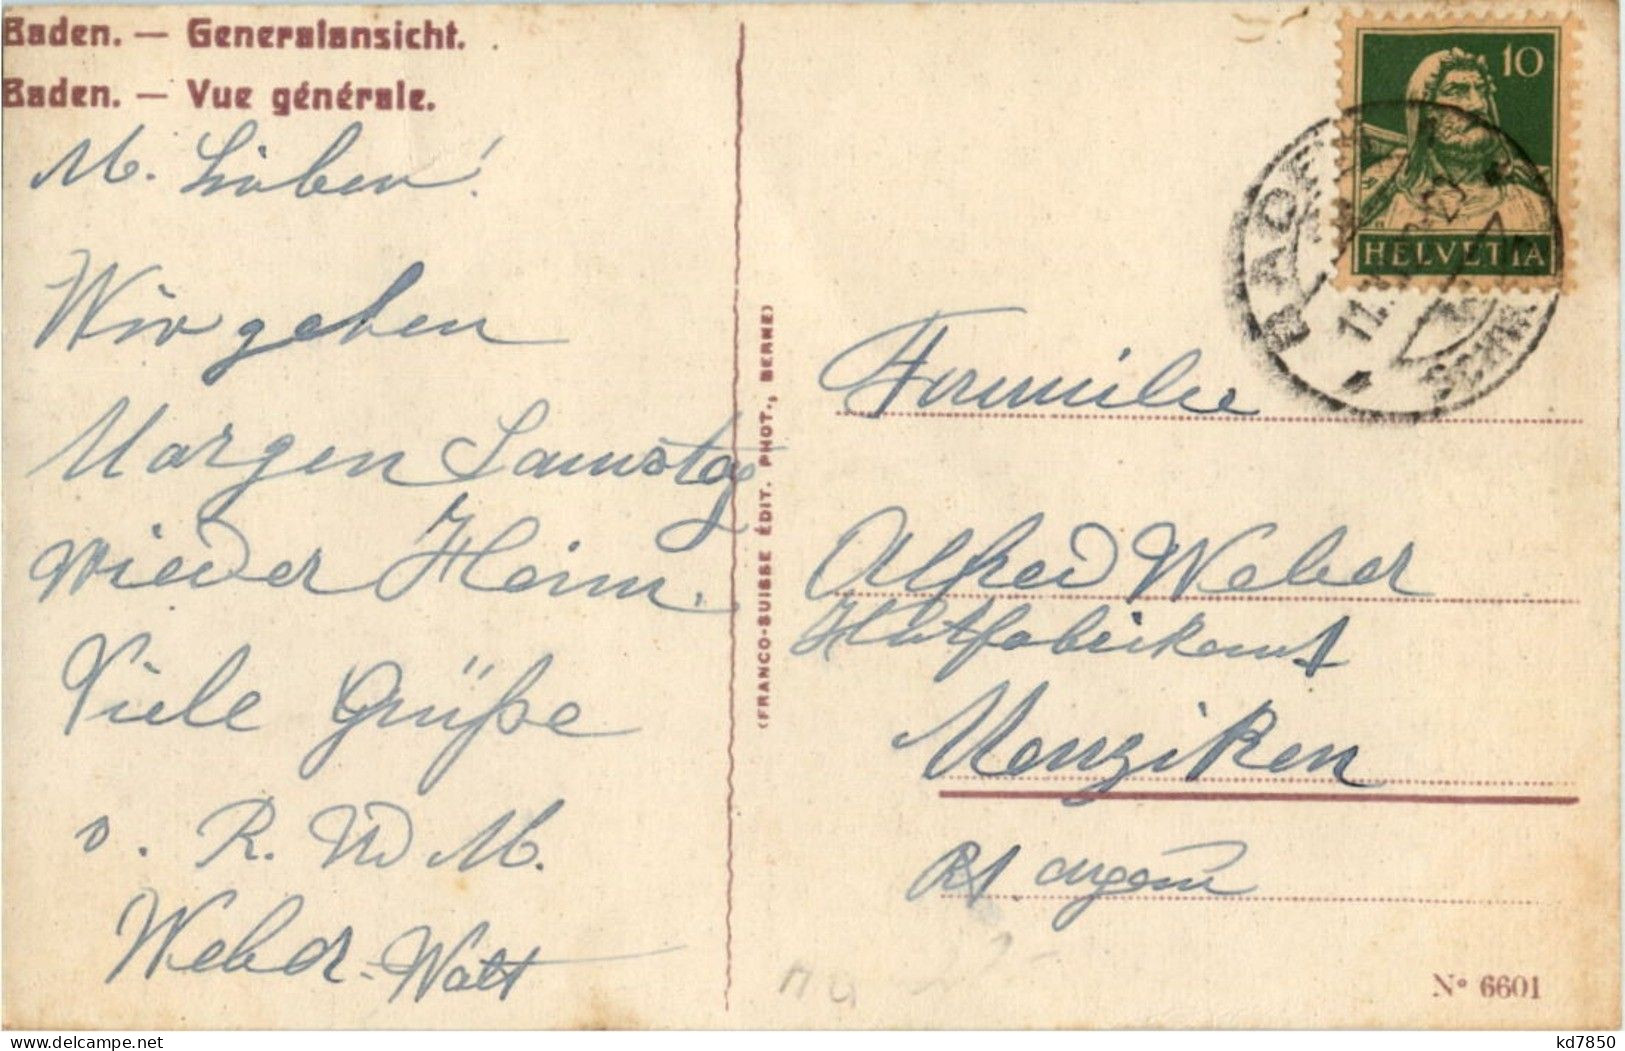 Baden. — Generalansicht.
Baden. — Vue générale.
M. Lieben!
Wir gehen
Morgen Samstag
wieder Heim.
Viele Grüße
v. R. W M.
Weber-Wält
(FRANCO-SUISSE ÉDIT. PHOT., BERNE)
10
HELVETIA
BADEN
11.
SCHW.
Familie
Alfred Weber
Hutfabrikant
Menziken
Kt Argau
Nº 6601
kd7850